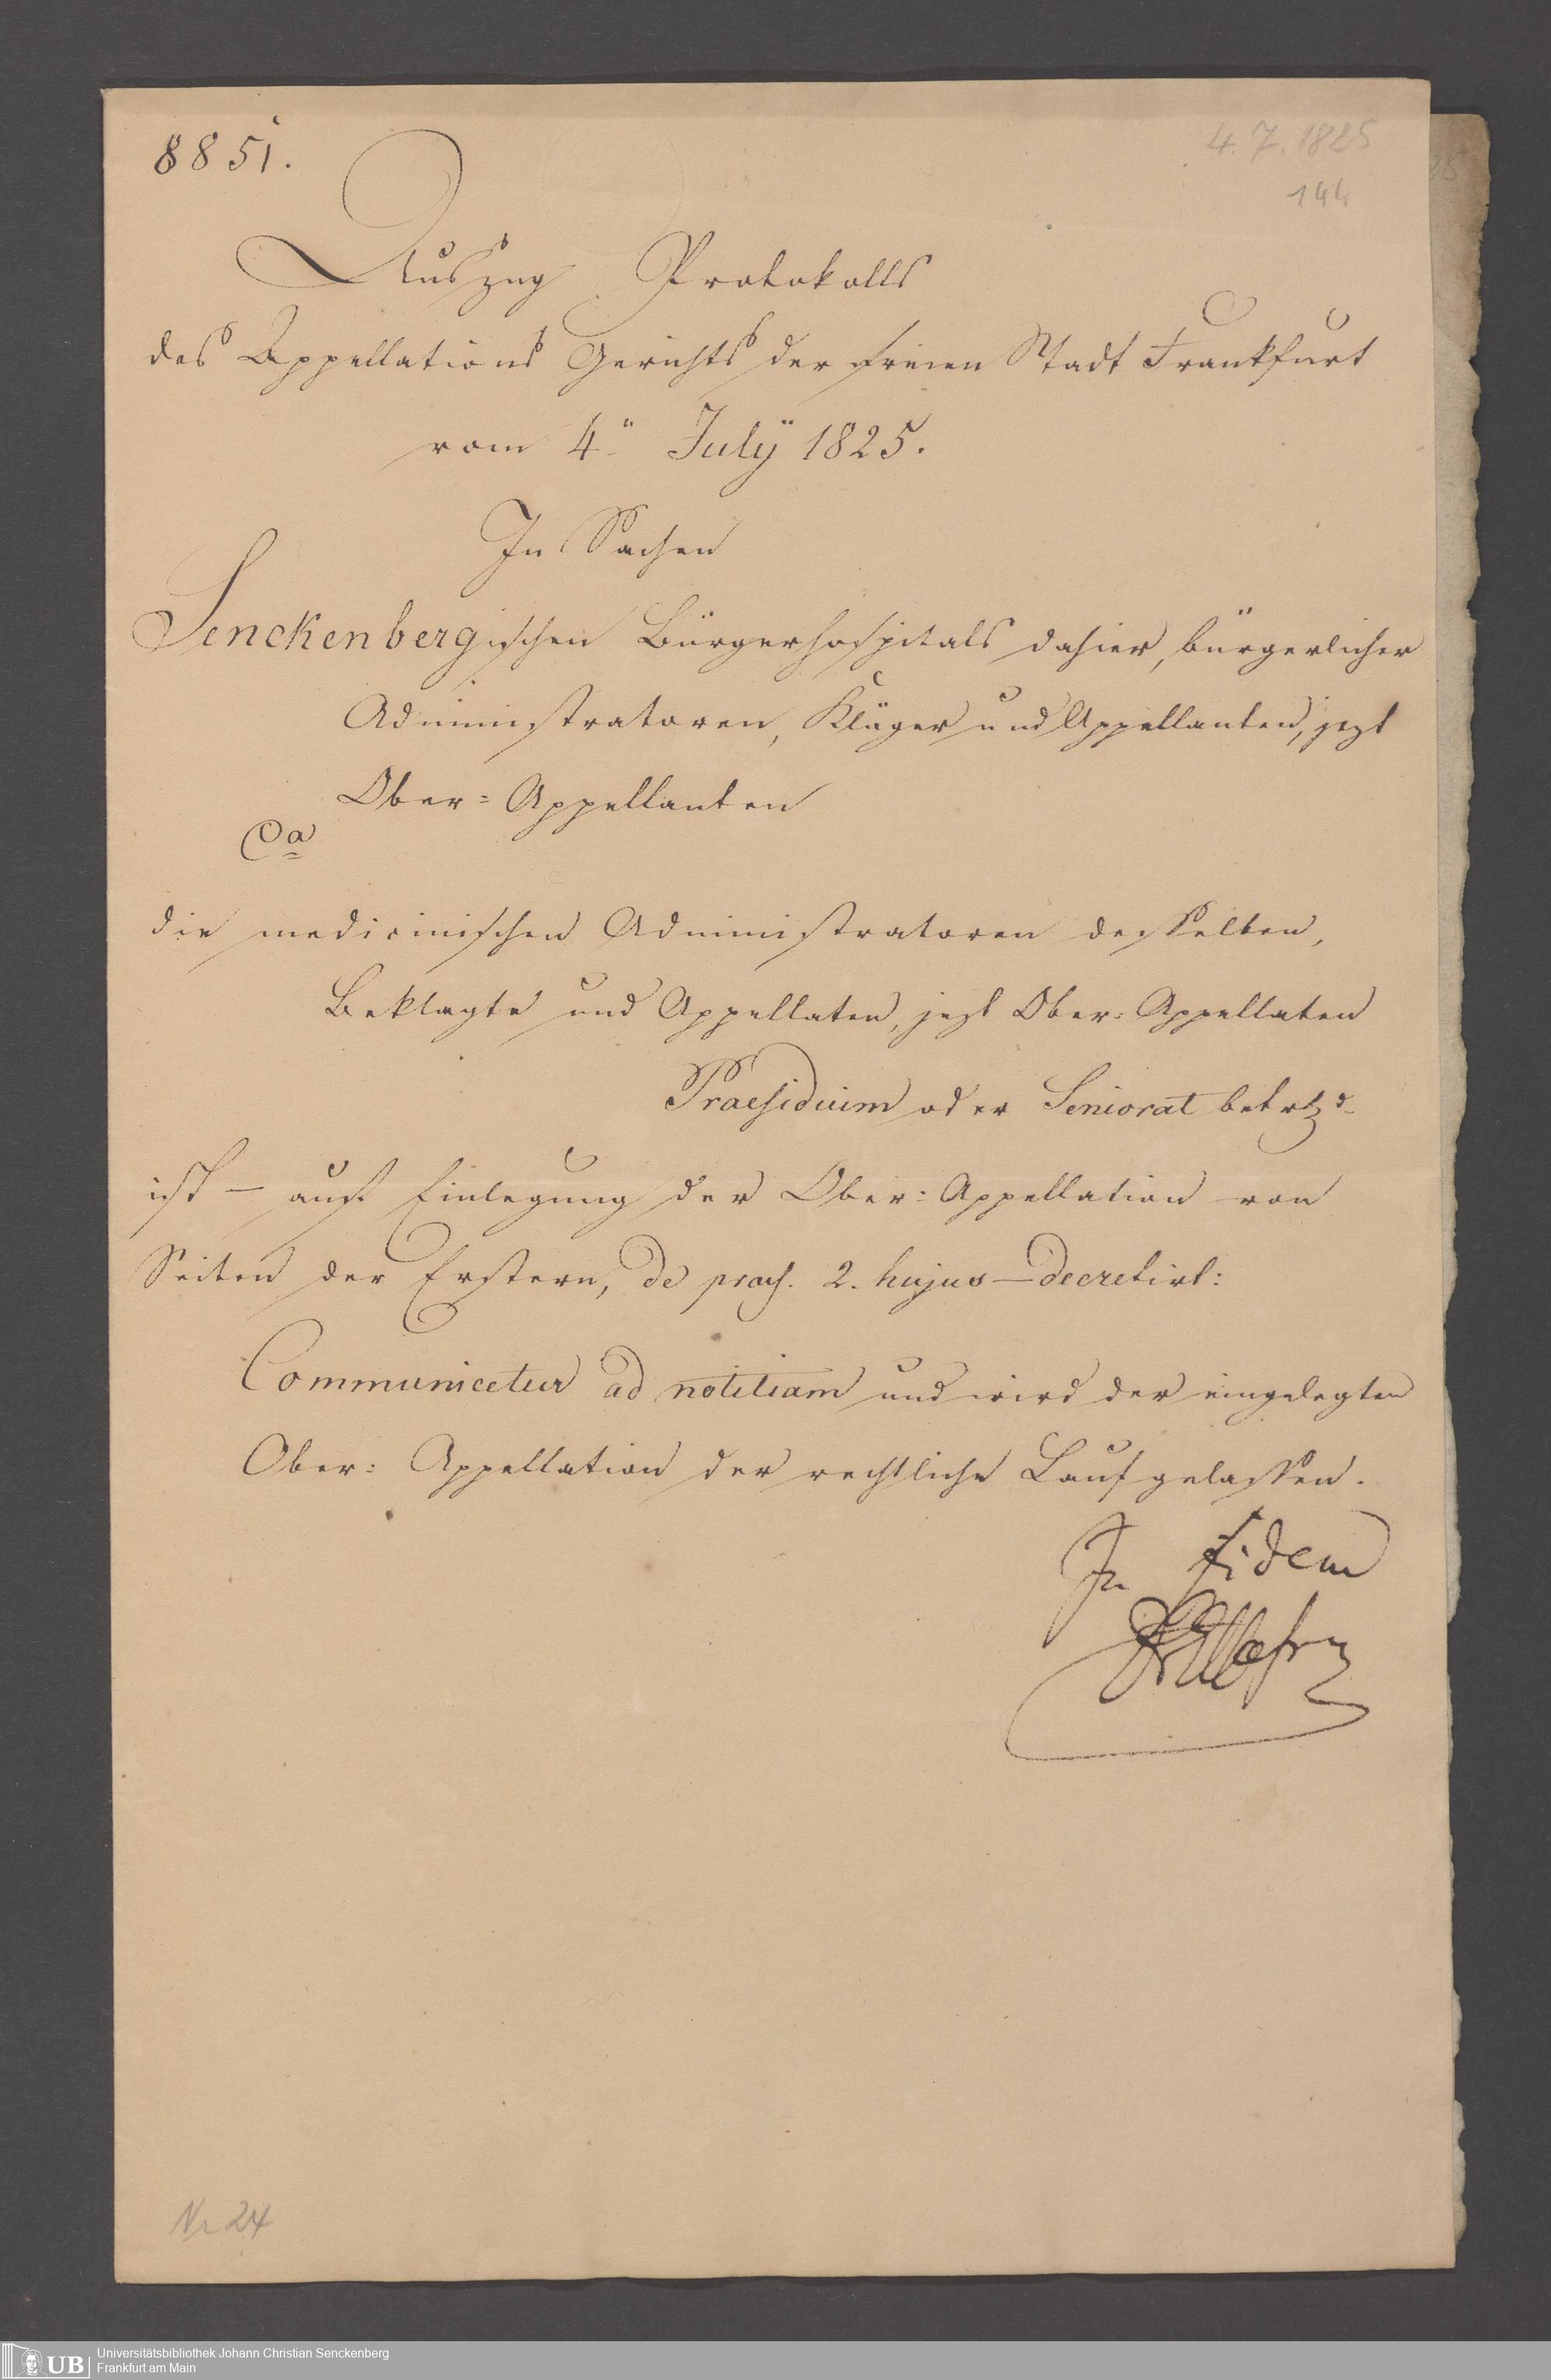 8851.
4.7.1825
144
Auszug Protokolls
des Appellations Gerichts der freien Stadt Frankfurt
vom 4n July 1825.
In Sachen
Senckenbergischen Bürgerhospitals dahier, bürgerlicher
Administratoren, Kläger und Appellanten, jezt
Ober=Appellanten
Ca
die medicinischen Administratoren desselben,
Beklagte und Appellaten, jezt Ober=Appellaten
Praesidium oder Seniorat betrd
ist – auf Einlegung der Ober=Appellation von
Seiten der Erstern, de praes. 2. hujus – decretirt:
Communicetur ad notitiam und wird der eingelegten
Ober=Appellation der rechtliche Lauf gelassen.
In fidem
Nr 24
UB Universitätsbibliothek Johann Christian Senckenberg
Frankfurt am Main